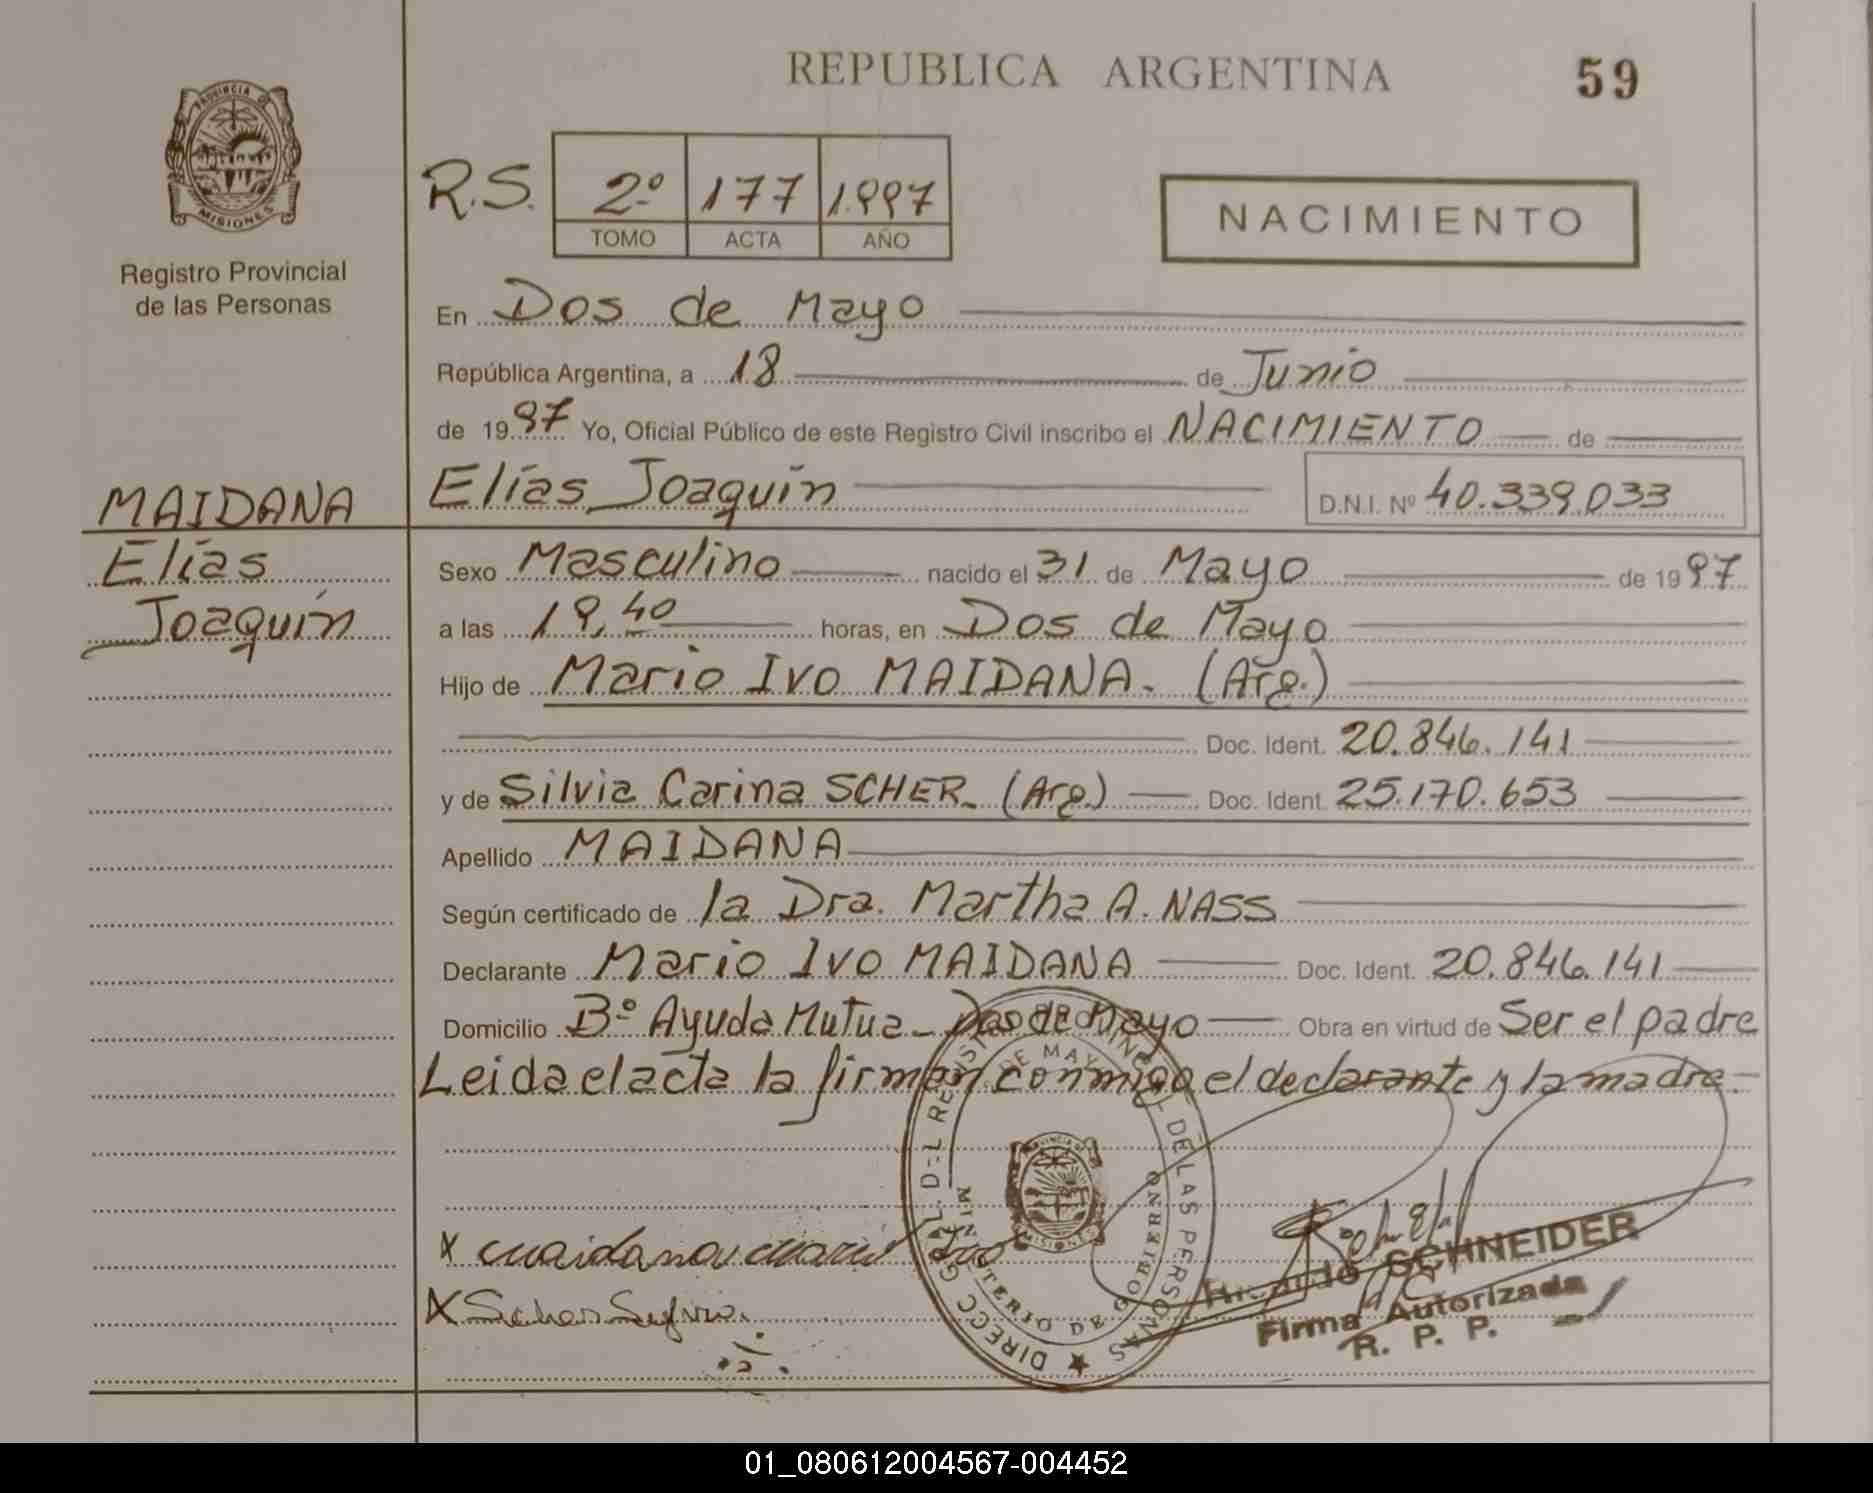 REPUBLICA ARGENTINA
59
PROVINCIA DE
MISIONES
Registro Provincial
de las Personas
R.S.
2º 177 1.997
TOMO ACTA AÑO
NACIMIENTO
En Dos de Mayo
República Argentina, a 18 de Junio
de 1997 Yo, Oficial Público de este Registro Civil inscribo el NACIMIENTO de
Elías Joaquín D.N.I. Nº 40.339.033
MAIDANA
Elías
Joaquín
Sexo Masculino nacido el 31 de Mayo de 1997
a las 19,40 horas, en Dos de Mayo
Hijo de Mario Ivo MAIDANA. (Arg.)
Doc. Ident. 20.846.141
y de Silvia Carina SCHER. (Arg.) Doc. Ident. 25.170.653
Apellido MAIDANA
Según certificado de la Dra. Martha A. NASS
Declarante Mario Ivo MAIDANA Doc. Ident. 20.846.141
Domicilio Bº Ayuda Mutua - Dos de Mayo Obra en virtud de Ser el padre
Leida el acta la firman conmigo el declarante y la madre.-
DIRECC. GRAL. DEL REGISTRO PROVINCIAL DE LAS PERSONAS
DE MAYO
MINISTERIO DE GOBIERNO
MISIONES
X Maidana Mario Ivo
X Scher Sylvia
SCHNEIDER
Firma Autorizada
R. P. P.
01_080612004567-004452